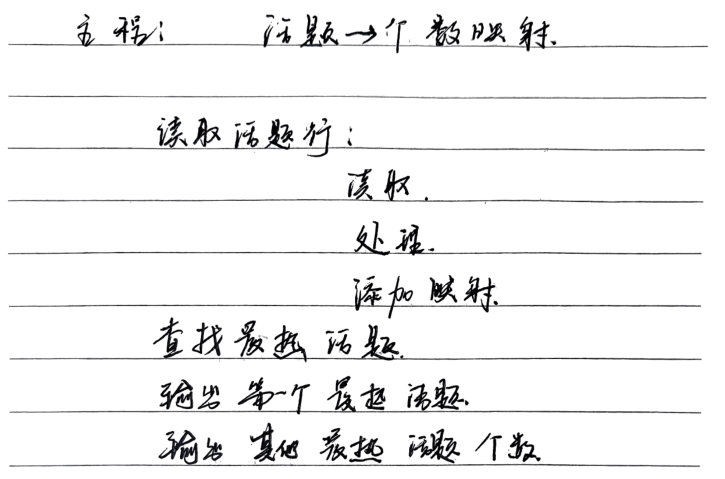 主程： 话题→个数映射.
读取话题行：
读取.
处理.
添加映射.
查找最热话题.
输出第一个最热话题.
输出其他最热话题个数.